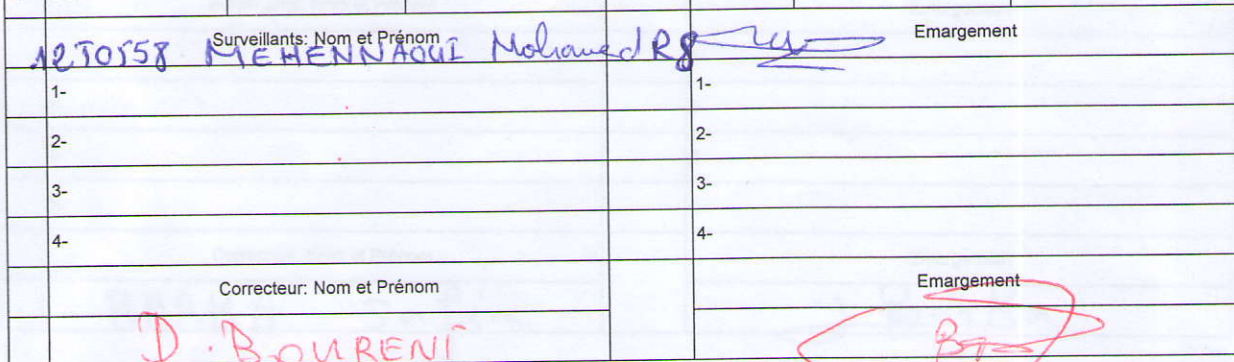 Surveillants: Nom et Prénom Emargement
12T0158 MEHENNAOUI Mohamed R8
1- 1-
2- 2-
3- 3-
4- 4-
Correcteur: Nom et Prénom Emargement
D. BOURENI